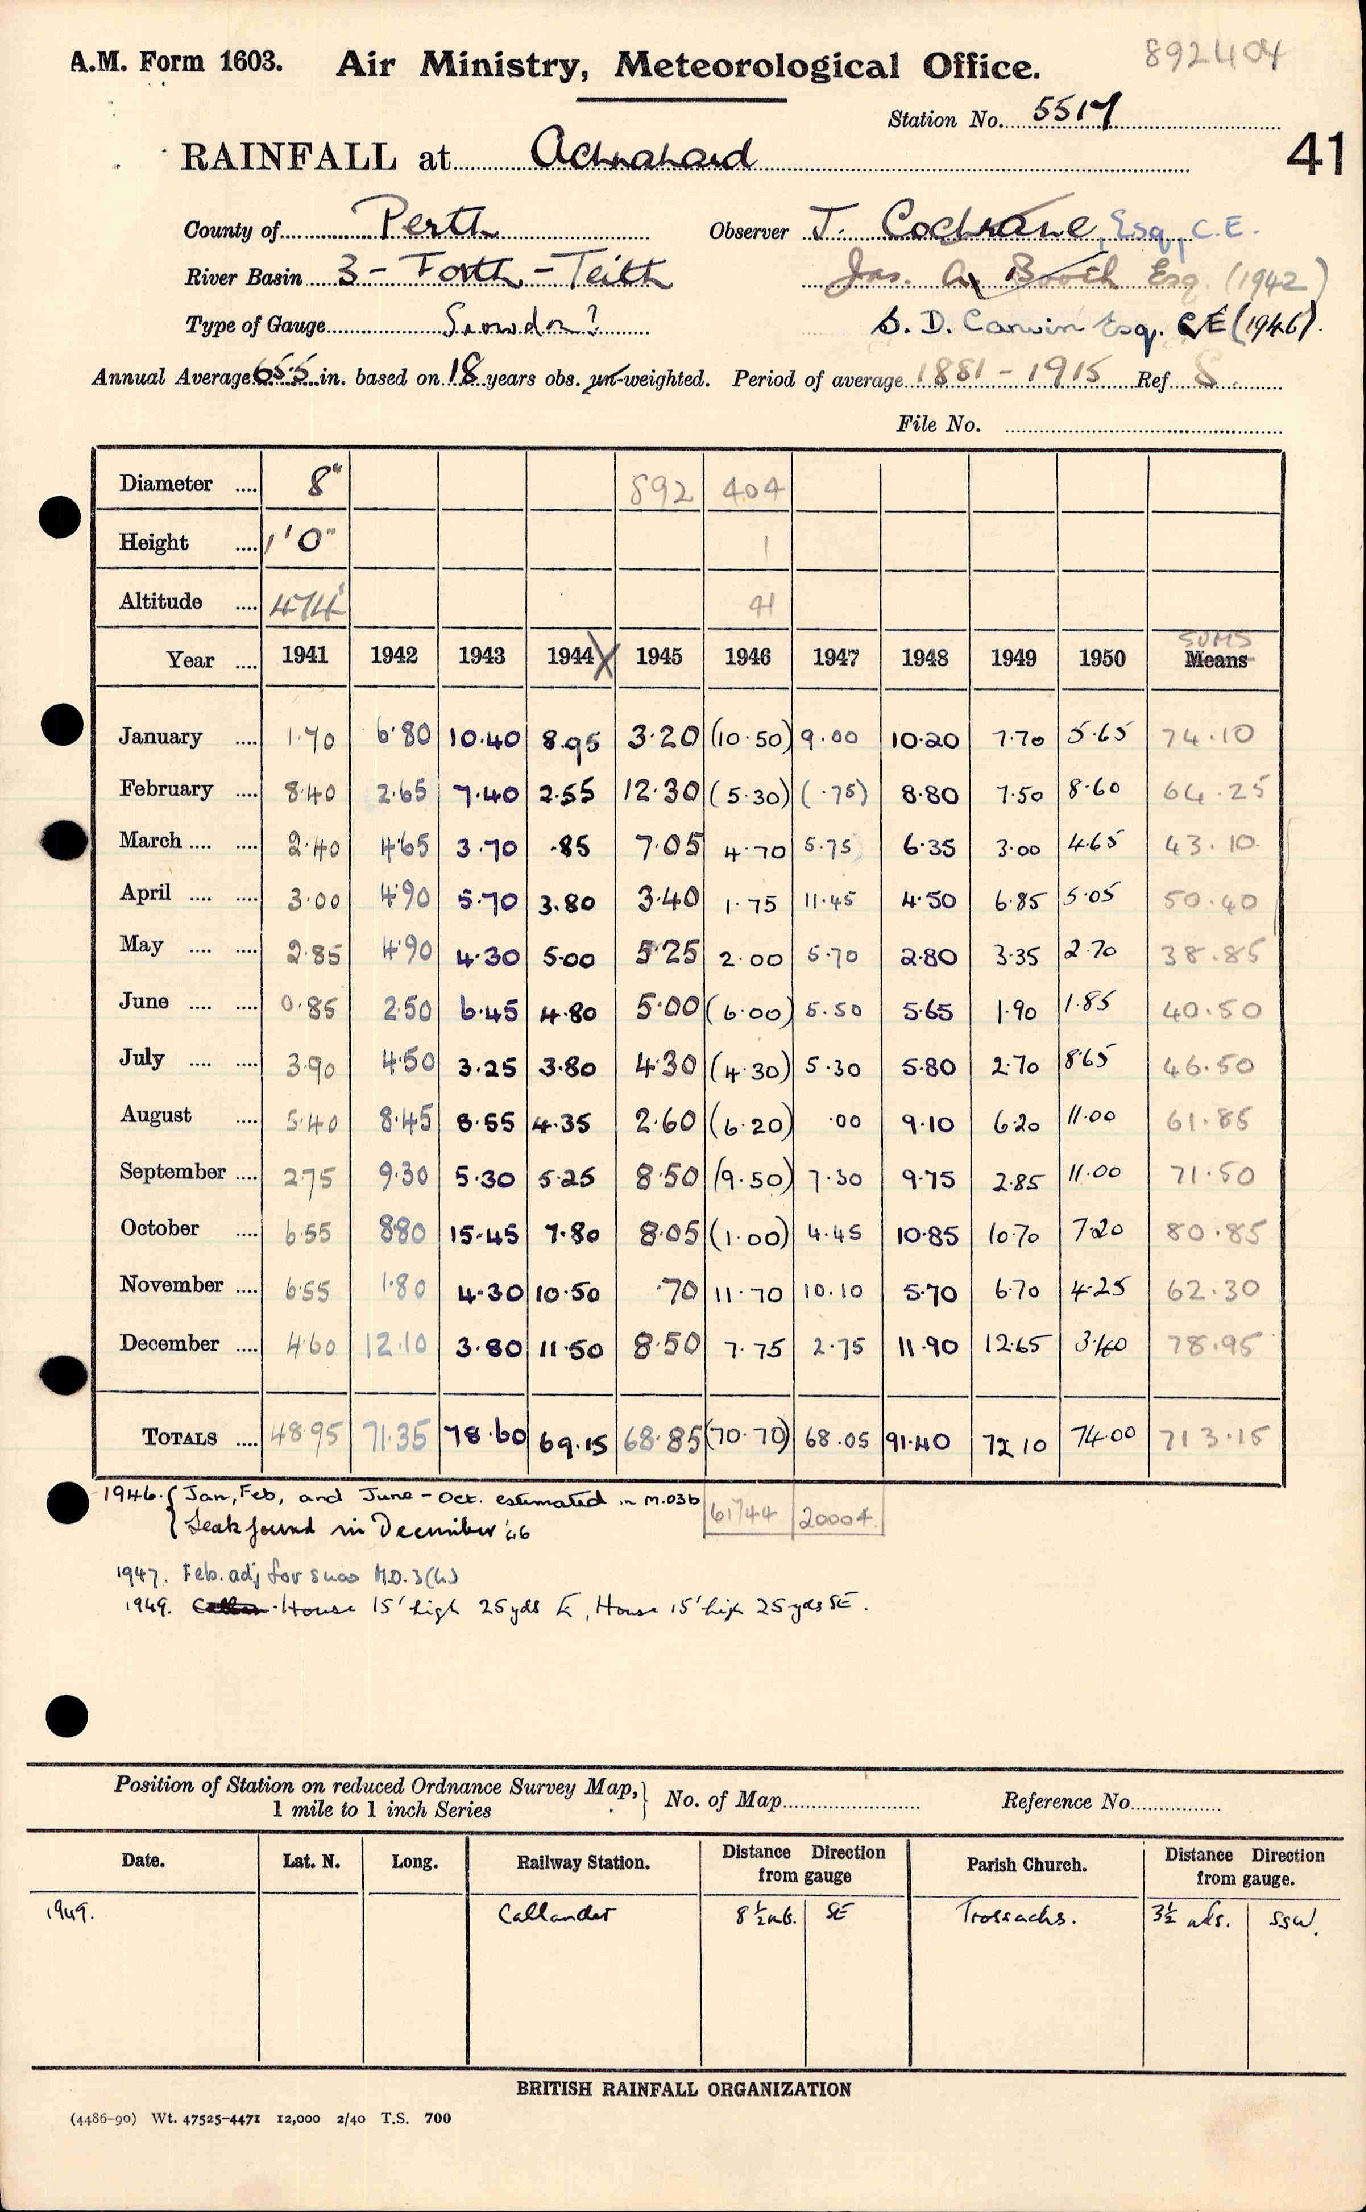 A.M. Form 1603. Air Ministry, Meteorological Office. 892404
Station No. 5517
RAINFALL at Achnahard 41
County of Perth Observer J. Cochrane, Esq., C.E.
River Basin 3 - Forth - Teith Jas. A. Booth Esq. (1942)
Type of Gauge Snowdon? S. D. Canvin Esq. C.E. (1946).
Annual Average 65.5 in. based on 18 years obs. un-weighted. Period of average 1881 - 1915 Ref. S.
File No.
Diameter .... 8" 892 404
Height .... 1' 0" 1
Altitude .... 474' 41
Year .... 1941 1942 1943 1944 X 1945 1946 1947 1948 1949 1950 SUMS Means
January .... 1.70 6.80 10.40 8.95 3.20 (10.50) 9.00 10.20 7.70 5.65 74.10
February .... 8.40 2.65 7.40 2.55 12.30 (5.30) (.75) 8.80 7.50 8.60 64.25
March .... .... 2.40 4.65 3.70 .85 7.05 4.70 5.75 6.35 3.00 4.65 43.10
April .... .... 3.00 4.90 5.70 3.80 3.40 1.75 11.45 4.50 6.85 5.05 50.40
May .... .... 2.85 4.90 4.30 5.00 5.25 2.00 5.70 2.80 3.35 2.70 38.85
June .... .... 0.85 2.50 6.45 4.80 5.00 (6.00) 5.50 5.65 1.90 1.85 40.50
July .... .... 3.90 4.50 3.25 3.80 4.30 (4.30) 5.30 5.80 2.70 8.65 46.50
August .... 5.40 8.45 8.55 4.35 2.60 (6.20) .00 9.10 6.20 11.00 61.85
September .... 2.75 9.30 5.30 5.25 8.50 (9.50) 7.30 9.75 2.85 11.00 71.50
October .... 6.55 8.80 15.45 7.80 8.05 (1.00) 4.45 10.85 10.70 7.20 80.85
November .... 6.55 1.80 4.30 10.50 .70 11.70 10.10 5.70 6.70 4.25 62.30
December .... 4.60 12.10 3.80 11.50 8.50 7.75 2.75 11.90 12.65 3.40 78.95
TOTALS .... 48.95 71.35 78.60 69.15 68.85 (70.70) 68.05 91.40 72.10 74.00 713.15
1946. { Jan, Feb, and June - Oct. estimated in M.O3b
{ Leak found in December '46 61744 20004
1947. Feb. adj for snow M.O.3(b)
1949. House 15' high 25 yds E, House 15' high 25 yds SE.
Position of Station on reduced Ordnance Survey Map, } No. of Map Reference No.
1 mile to 1 inch Series
Date. Lat. N. Long. Railway Station. Distance Direction from gauge Parish Church. Distance Direction from gauge.
1949. Callander 8½ mls. SE Trossachs. 3½ mls. SSW.
BRITISH RAINFALL ORGANIZATION
(4486-90) Wt. 47525-4471 12,000 2/40 T.S. 700